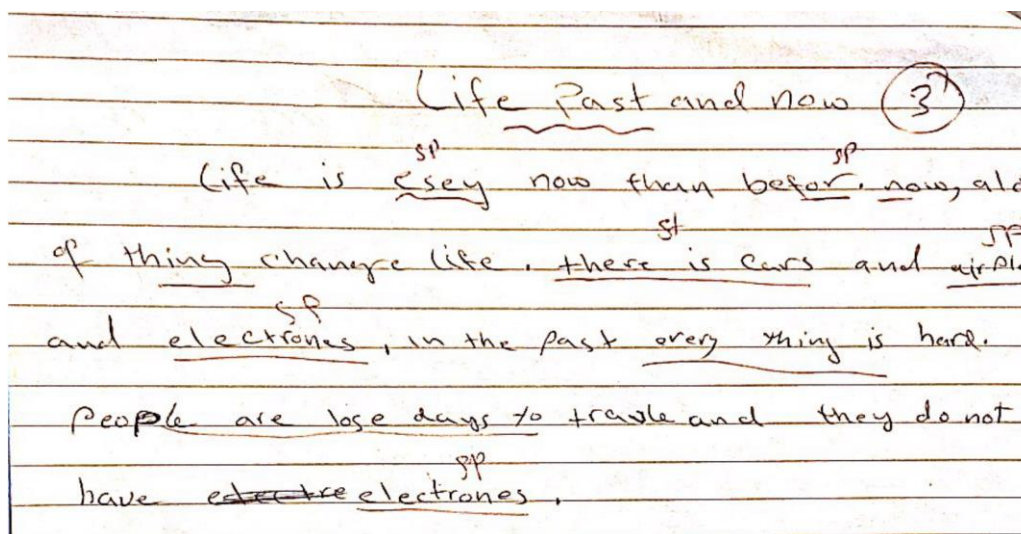 Life Past and now 3
sp sp
Life is esey now than befor. now, alo
st sp
of thing change life. there is cars and airpl
sp
and electrones, in the past every thing is hard.
People are lose days to travle and they do not
sp
have electrones.